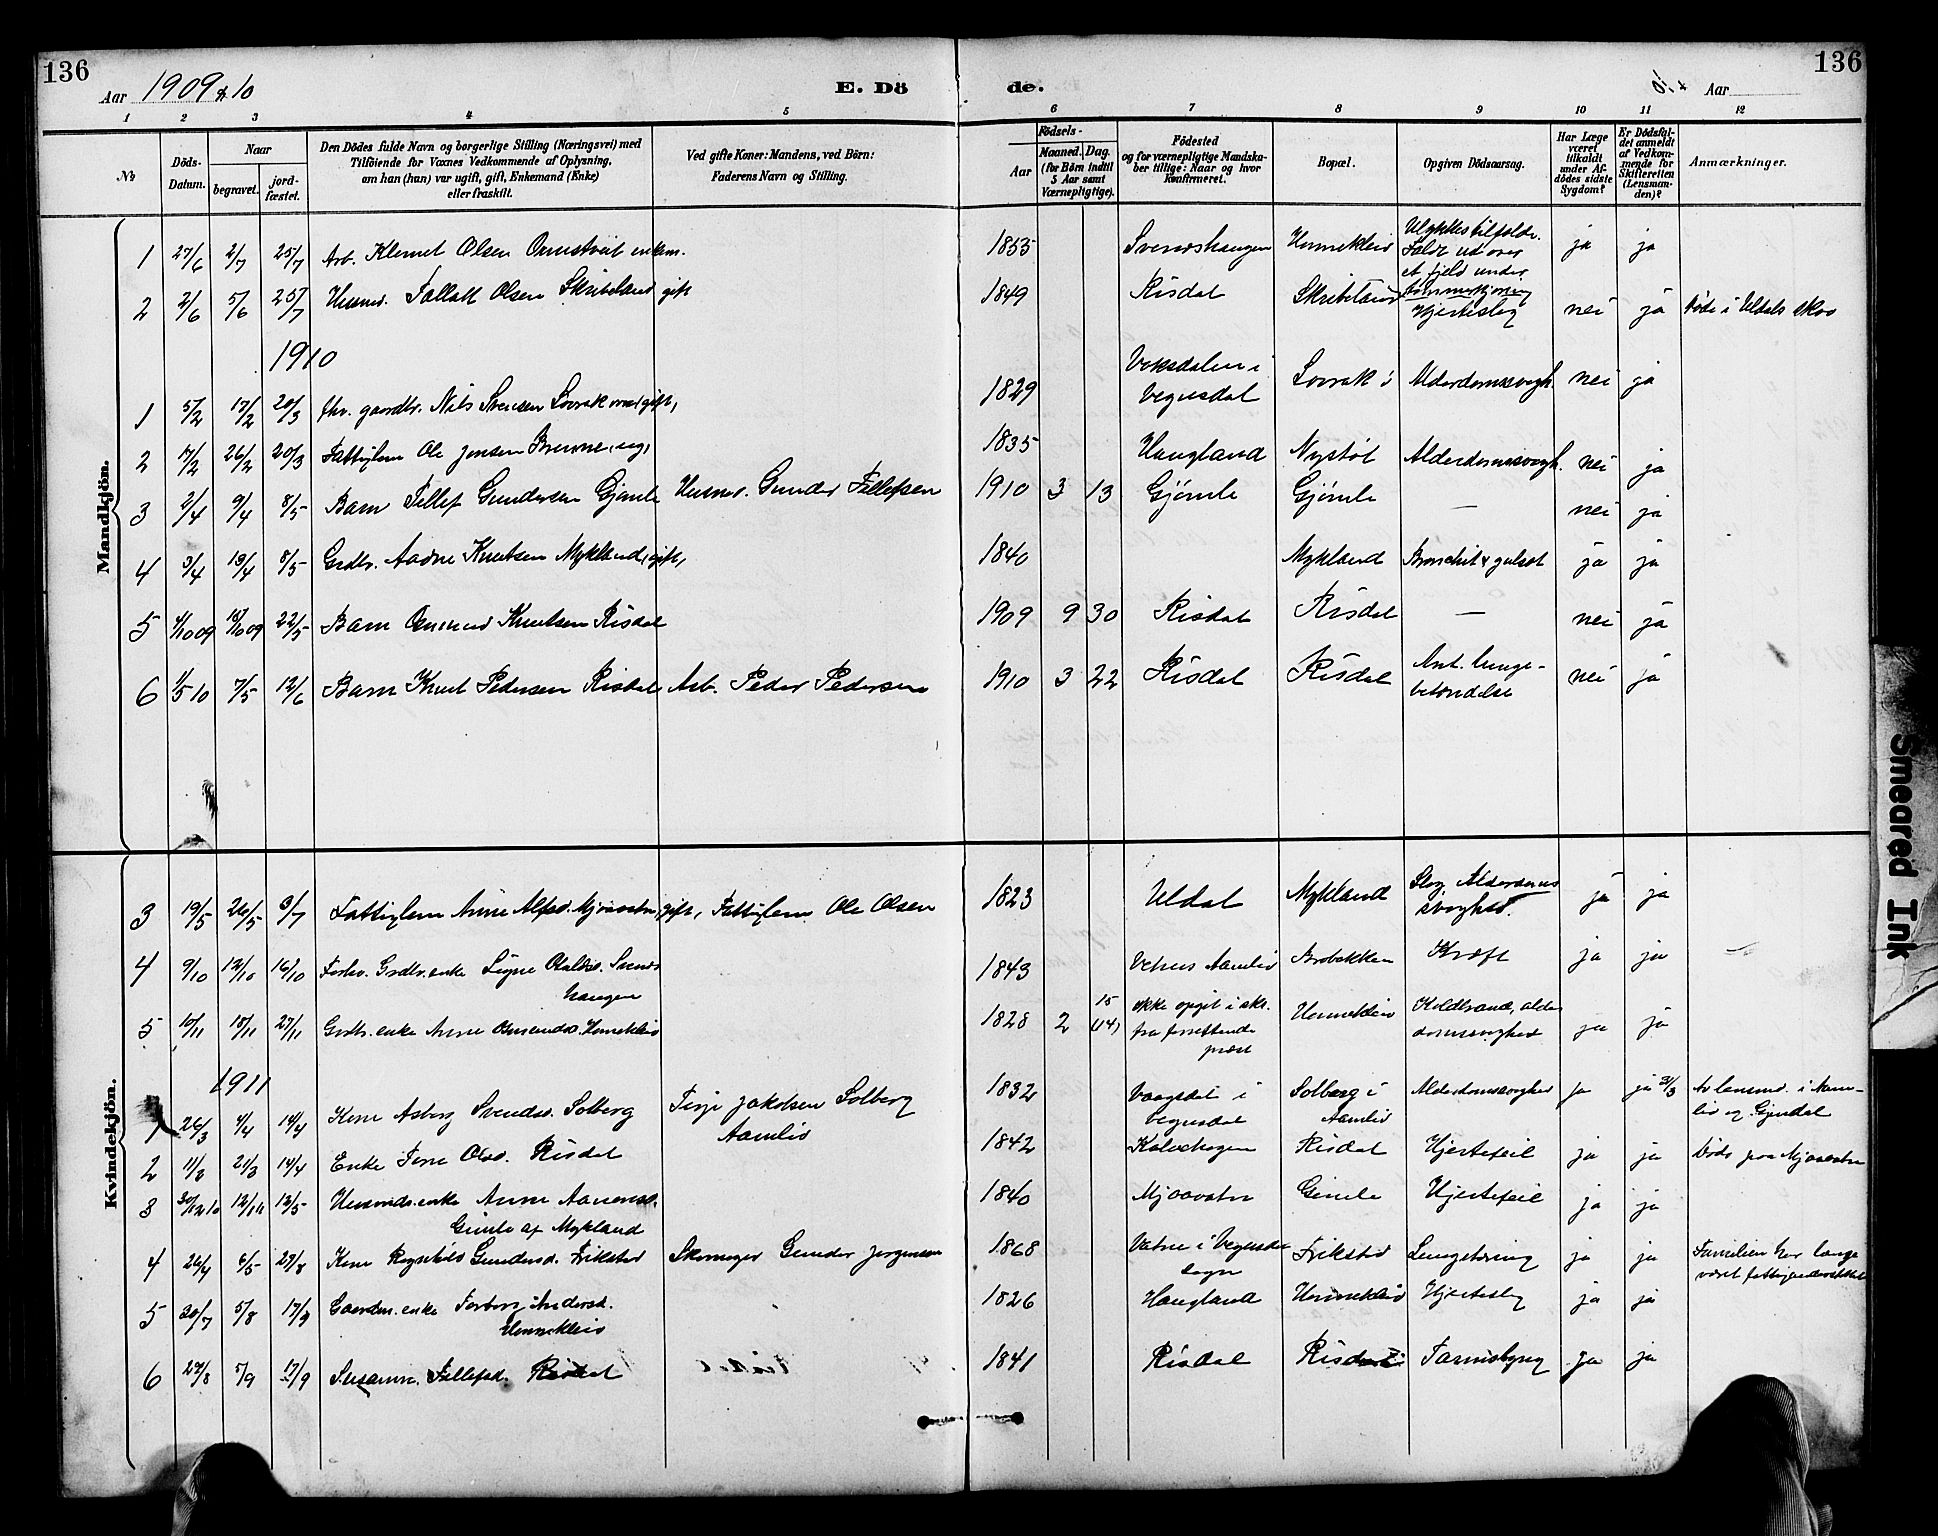 136
136
Aar 1909 & 10
E. Dö
de.
Aar
1 2 3 4 5 6 7 8 9 10 11 12
№
Döds-
Datum.
Naar
begravet.
jord-
fæstet.
Den Dödes fulde Navn og borgerlige Stilling (Næringsvei) med
Tilföiende for Voxnes Vedkommende af Oplysning,
om han (hun) var ugift, gift, Enkemand (Enke)
eller fraskilt.
Ved gifte Koner: Mandens, ved Börn:
Faderens Navn og Stilling.
Födsels-
Aar
Maaned.
Dag.
(for Börn indtil
5 Aar samt
Værnepligtige).
Födested
og for værnepligtige Mandska-
ber tillige: Naar og hvor
konfirmeret.
Bopæl.
Opgiven Dödsaarsag.
Har Læge
været
tilkaldt
under Af-
dödes sidste
Sygdom?
Er Dödsfal-
det anmeldt
af Vedkom-
mende for
Skifteretten
(Lensman-
den)?
Anmærkninger.
Mandkjön.
1 27/6 2/7 25/7 Arb. Klemet Olsen Ormstveit enkem. 1853 Svendshaugen Hennekleiv Ulykkestilfælde. Faldt ud over et fjeld under tømmerkjøring ja ja
2 2/6 5/6 25/7 Husm. Tallak Olsen Skribeland gift 1849 Risdal Skribeland Hjerteslag nei ja Døde i Uldals skov
1910
1 5/2 17/2 20/3 fhv. gaardbr. Nils Svensen Lovrak gift, 1829 Voksdalen i Vegusdal Lovrak Alderdomssvagh. nei ja
2 17/2 26/2 20/3 Fattiglem Ole Jensen ug, 1835 Haugland Nystøl Alderdomssvagh. nei ja
3 2/4 9/4 8/5 Barn Tellef Gundersen Gjømle Husm. Gunder Tellefsen 1910 3 13 Gjømle Gjømle — nei ja
4 3/4 13/4 8/5 Grdbr. Aadne Knutsen Mykland, gift, 1840 Mykland Bronchit & gulsot ja ja
5 4/10 09 18/10 09 22/5 Barn Ommund Knutsen Risdal 1909 9 30 Risdal Risdal — nei ja
6 1/5 10 7/5 12/6 Barn Knut Pedersen Risdal Arb. Peder Pedersen 1910 3 22 Risdal Risdal Ant. lunge-
betændelse nei ja
Kvindekjön.
3 19/5 26/5 3/7 Fattiglem Anne Alfsd. Mjaavatn, gift, Fattiglem Ole Olsen 1823 Uldal Mykland Slag, Alderdoms
svaghed. ja ja
4 9/10 12/10 16/10 Forhv. Grdbr. enke Signe Olsd. Svends
haugen 1843 Vehus Aamliv Brobakken Kræft ja ja
5 10/11 18/11 27/11 Grdbr. enke Anne Omundsd. Hennekleiv 1828 2 15 (14) ikke opgit i skr.
fra forrettende
præst Hennekleiv Koldbrand, alder
domssvaghed ja ja
1911
1 26/3 4/4 14/4 Kone Asberg Svendsd. Solberg Terje Jakobsen Solberg
Aamliv 1832 Vaagsdal i
Vegusdal Solberg i
Aamliv Alderdomssvaghed ja ja 31/3 Av lensmd. i Aam-
liv og Gjøvdal
2 11/3 21/3 14/4 Enke Tone Olsd. Risdal 1842 Kalvehagen Risdal Hjertefeil ja ja Døde paa Mjaavatn
3 30/12 10 12/1 11 12/5 Husmds. enke Anne Aanensd.
Gimle af Mykland 1840 Mjaavatn Gimle Hjertefeil ja ja
4 26/4 6/5 27/8 Kone Ragnhild Gundersd. Frikstad Skomager Gunder Jørgensen 1868 Vatne i Vegusdal
sogn Frikstad Lungetæring ja ja Familien har længe
været fattigunderstøttet
5 30/7 5/8 17/9 Gaardm. enke Torborg Andersd.
Hennekleiv 1826 Haugland Hennekleiv Hjerteslag ja ja
6 29/8 5/9 17/9 Susanne Tellefsd. Risdal 1841 Risdal Risdal Tarmslyng ja ja
Smeared Ink